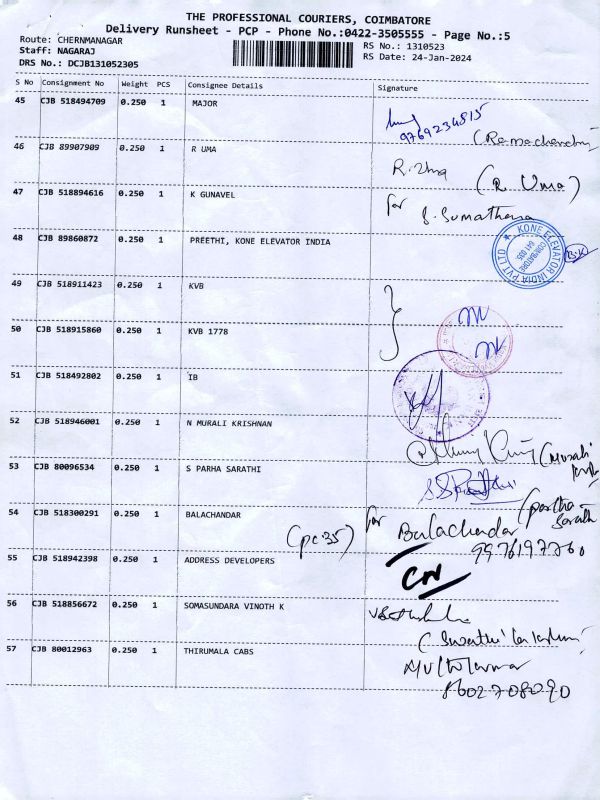 THE PROFESSIONAL COURIERS, COIMBATORE
Delivery Runsheet - PCP - Phone No.:0422-3505555 - Page No.:5
Route: CHERNMANAGAR
Staff: NAGARAJ RS No.: 1310523
DRS No.: DCJB131052305 RS Date: 24-Jan-2024
S No Consignment No Weight PCS Consignee Details Signature
45 CJB 518494709 0.250 1 MAJOR
9769234815
(Ramachandran)
46 CJB 89907909 0.250 1 R UMA
R. Uma (R. Uma)
47 CJB 518894616 0.250 1 K GUNAVEL
for S. Sumathana
48 CJB 89860872 0.250 1 PREETHI, KONE ELEVATOR INDIA
KONE ELEVATOR INDIA PVT LTD
COIMBATORE
641 005
B.K
49 CJB 518911423 0.250 1 KVB
50 CJB 518915860 0.250 1 KVB 1778
51 CJB 518492802 0.250 1 IB
52 CJB 518946001 0.250 1 N MURALI KRISHNAN
(Murali
53 CJB 80096534 0.250 1 S PARHA SARATHI
(partha
Sarath
54 CJB 518300291 0.250 1 BALACHANDAR
(pc:35) for Balachandar
9976197760
55 CJB 518942398 0.250 1 ADDRESS DEVELOPERS
CN
56 CJB 518856672 0.250 1 SOMASUNDARA VINOTH K
57 CJB 80012963 0.250 1 THIRUMALA CABS
8602708090